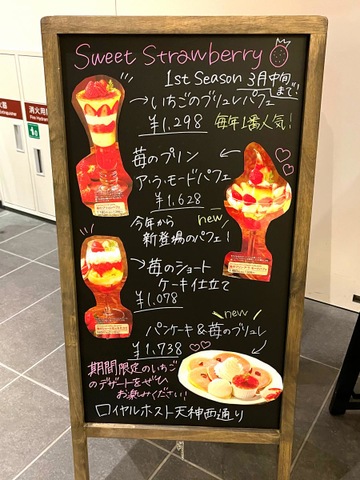 Sweet Strawberry
1st Season 3月中旬まで!
→いちごのブリュレパフェ
¥1,298 毎年1番人気!
苺のプリン
ア・ラ・モードパフェ
¥1,628
今年から new
新登場のパフェ!
→苺のショート
ケーキ仕立て
¥1,078
new
パンケーキ&苺のブリュレ
¥1,738
期間限定のいちご
のデザートをぜひ
お楽しみください!
ロイヤルホスト天神西通り
消火器
Extinguisher
消火用